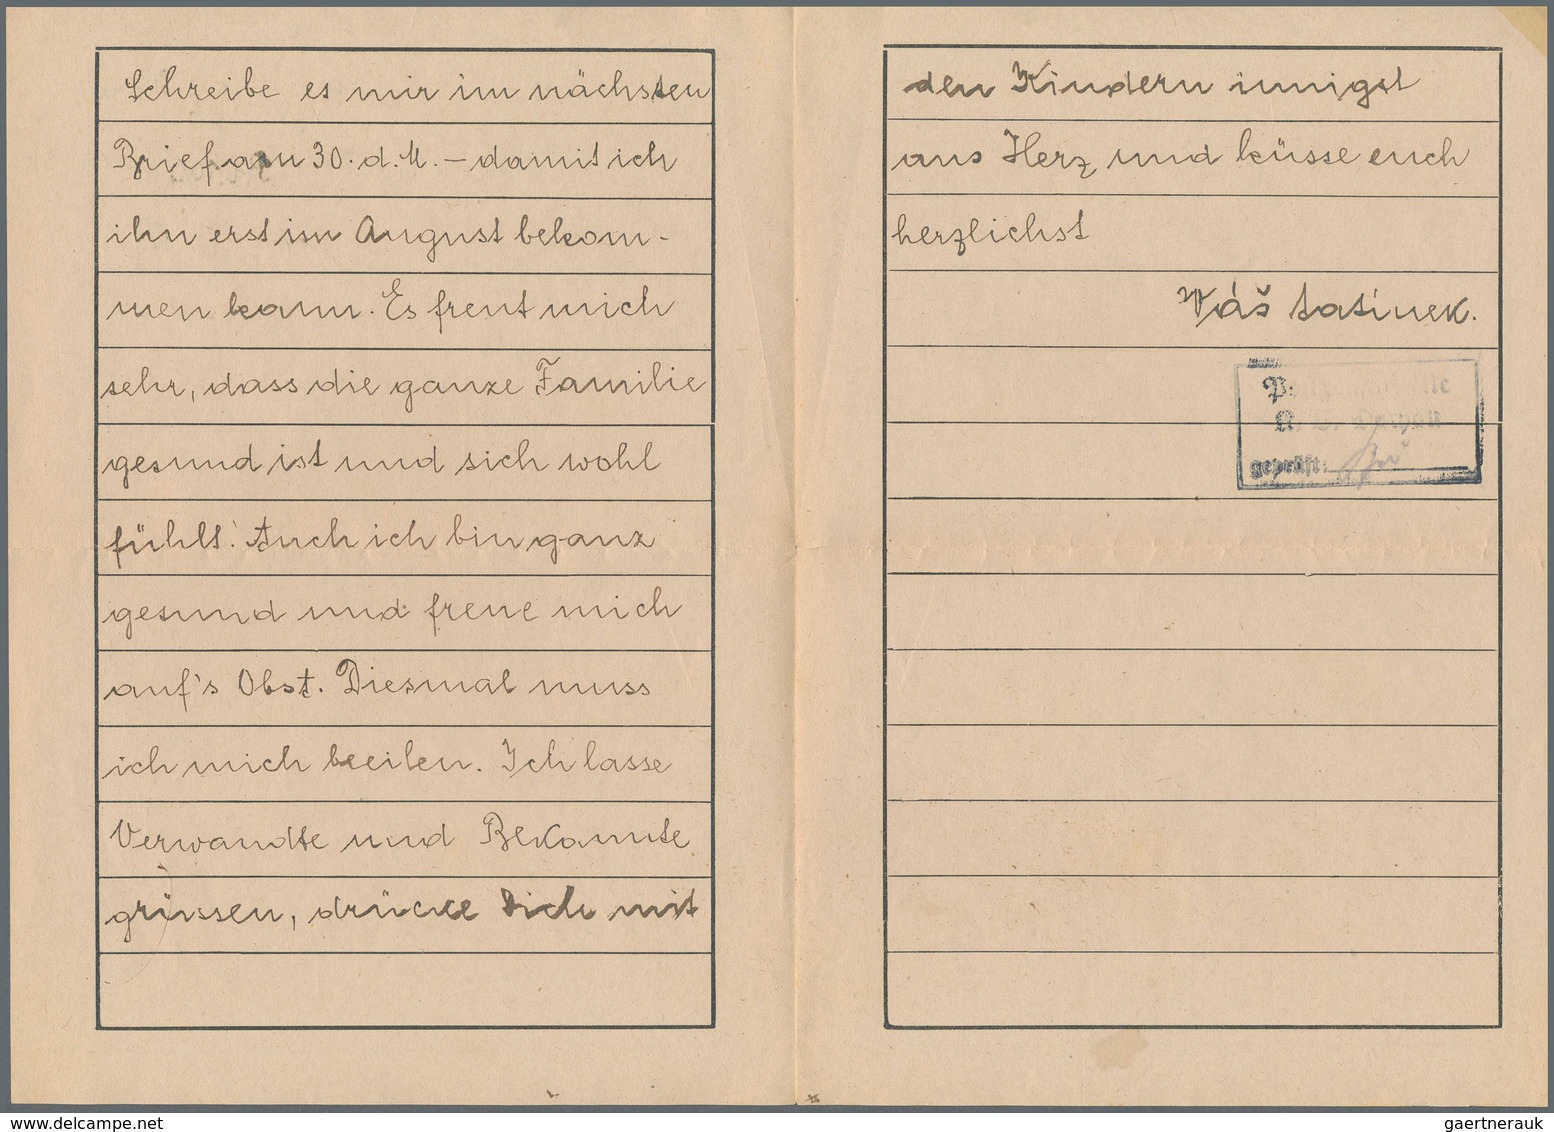 Schreibe es mir im nächsten
Brief am 30. d. M. – damit ich
ihn erst im August bekom-
men kann. Es freut mich
sehr, dass die ganze Familie
gesund ist und sich wohl
fühlt. Auch ich bin ganz
gesund und freue mich
auf's Obst. Diesmal muss
ich mich beeilen. Ich lasse
Verwandte und Bekannte
grüssen, drücke Dich mit
den Kindern innigst
ans Herz und küsse euch
herzlichst
Váš tatínek.
geprüft:
www.delcampe.net
gaertnerauk